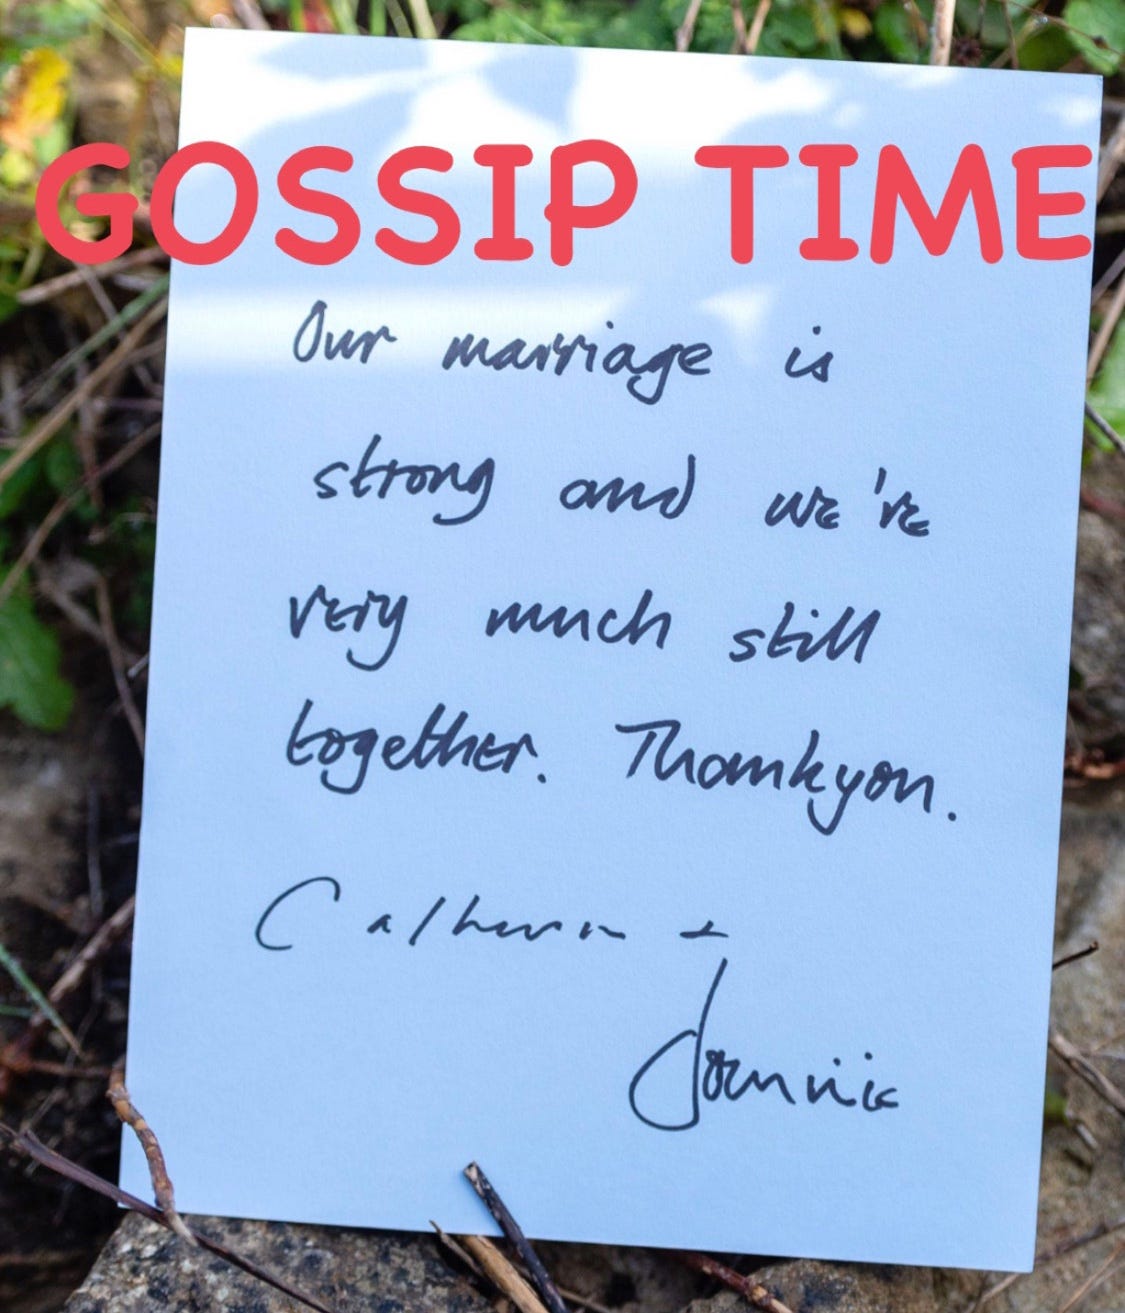 GOSSIP TIME
Our marriage is
strong and we're
very much still
together. Thankyou.
Catherine +
Dominic